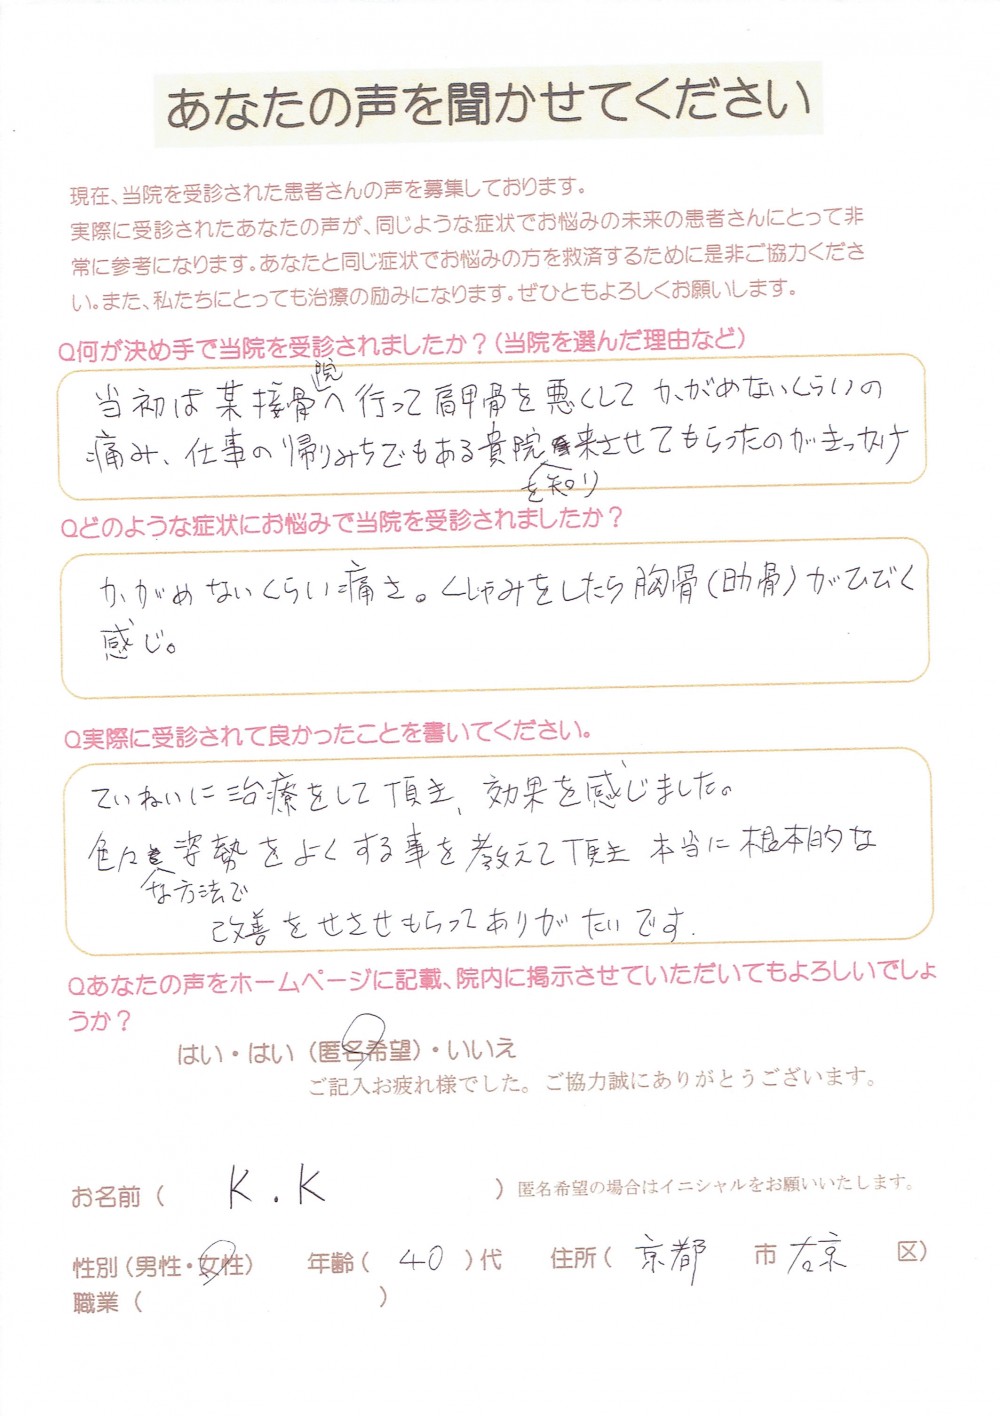 あなたの声を聞かせてください
現在、当院を受診された患者さんの声を募集しております。
実際に受診されたあなたの声が、同じような症状でお悩みの未来の患者さんにとって非
常に参考になります。あなたと同じ症状でお悩みの方を救済するために是非ご協力くださ
い。また、私たちにとっても治療の励みになります。ぜひともよろしくお願いします。
Q何が決め手で当院を受診されましたか？（当院を選んだ理由など）
当初は某接骨院へ行って肩甲骨を悪くしてかがめないくらいの
痛み、仕事の帰りみちでもある貴院を知り来させてもらったのがきっかけ
Qどのような症状にお悩みで当院を受診されましたか？
かがめないくらい痛さ。くしゃみをしたら胸骨（肋骨）がひびく
感じ。
Q実際に受診されて良かったことを書いてください。
ていねいに治療をして頂き、効果を感じました。
色々な方法で姿勢をよくする事を教えて頂き本当に根本的な
改善をせさせもらってありがたいです.
Qあなたの声をホームページに記載、院内に掲示させていただいてもよろしいでしょ
うか？
はい・はい（匿名希望）・いいえ
ご記入お疲れ様でした。ご協力誠にありがとうございます。
お名前（ K.K ）匿名希望の場合はイニシャルをお願いいたします。
性別（男性・女性） 年齢（ 40 ）代 住所（ 京都 市 右京 区）
職業（ ）